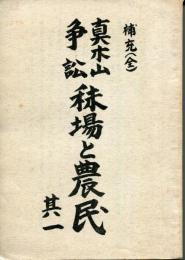 補充(全)
真木山
争訟
秣場と農民
其一